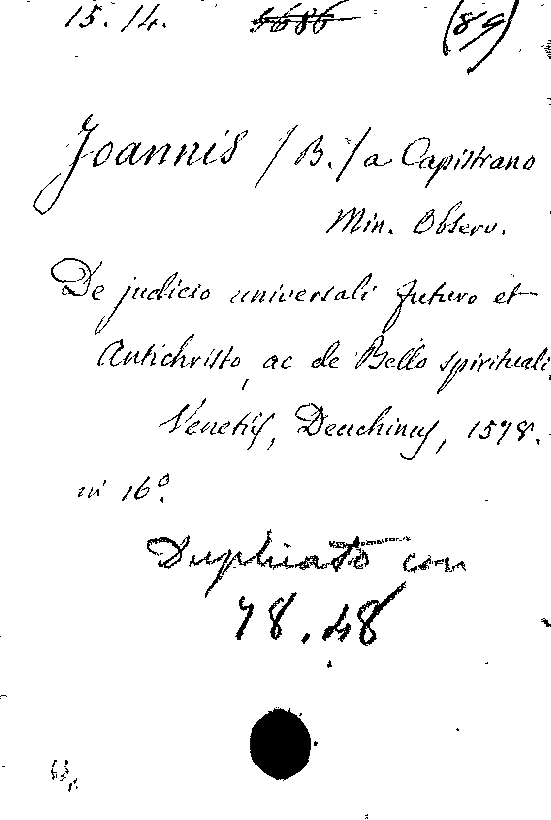 15. 14. 5686 (89)
Joannis /B./ a Capistrano
Min. Observ.
De judicio universali futuro et
Antichristo, ac de Bello spirituali,
Venetijs, Deuchinus, 1578.
in 16º.
Duplicato con
78.48